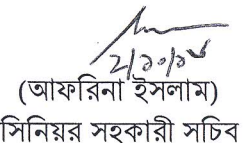 ২/১০/১৮
(আফরিনা ইসলাম)
সিনিয়র সহকারী সচিব